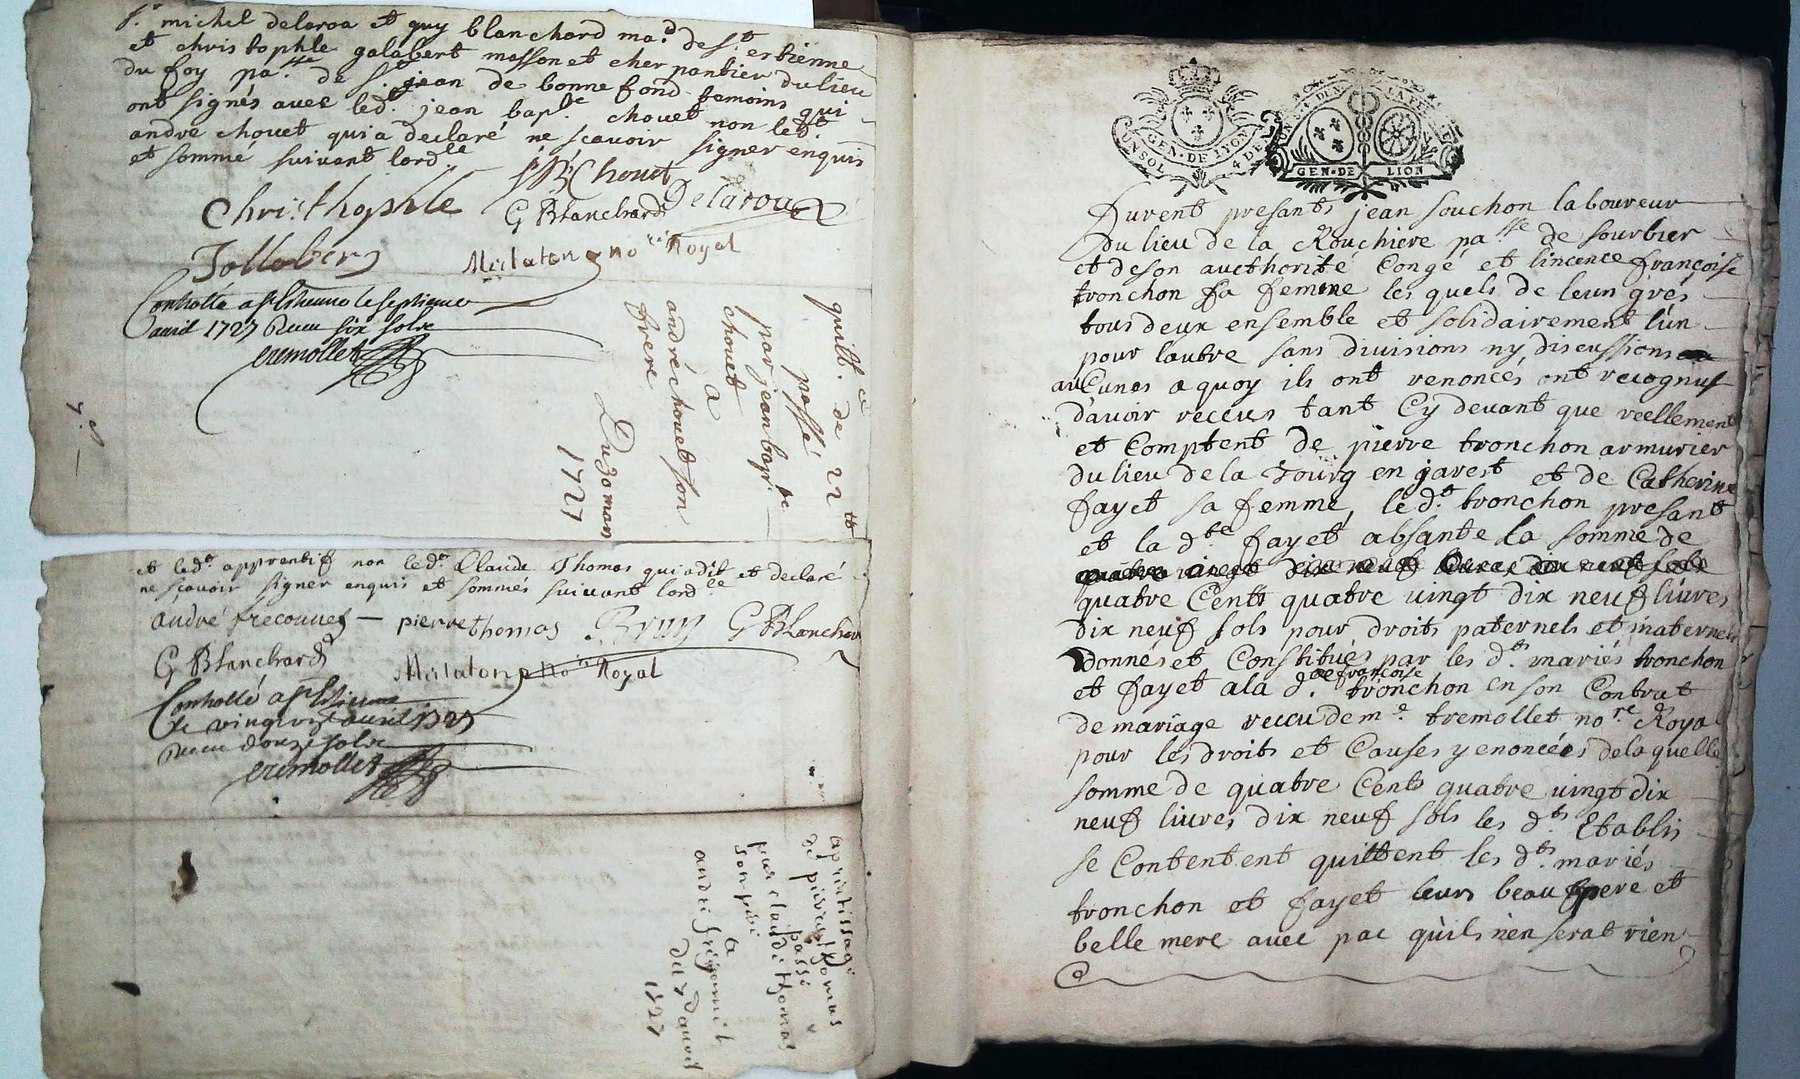 sr michel delaroa et guy blanchard mad. de st. estienne
et christophle galabert masson et cherpantier du lieu
du foy passe de st jean de bonnefond temoins qui
ont signés avec led. jean bapte chouet non led.t
andre chouet qui a declaré ne scavoir signer enquis
et sommé suivant lordce
JB Chouet
Christhophle
G Blanchard Delaroa
no re Royal
Controllé a st Estienne le septieme
avril 1727 Receu six sols
tremollet
quittce de 22 tt
passé
par jean bapte
chouet
a
andré chouet son
frere
Du 30 mars
1727
et led.t apprentif non led.t Claude Thomas qui a dit et declaré
ne scavoir signer enquis et sommés suivant lordce
andré frecounet pierre thomas Brun G Blanchard
G Blanchard
no re Royal
Controllé a st Estienne
avril 1727
receu douze sols
tremollet
aprantissage
de pierre thomas
passé
par claude thomas
son pere
a
andre
du 7 d'avril
1727
UN SOL 4 DEN
GEN. DE LYON
GEN. DE LION
Furent presants jean souchon laboureur
du lieu de la Rouchiere passe de sourbier
et de son aucthorité Congé et lincence françoise
tronchon sa femme les quels de leur grés
tous deux ensemble et solidairement lun
pour lautre sans divisions ny discussions
aucunes a quoy ils ont renoncés ont recognus
davoir receus tant Cy devant que reellement
et Comptent de pierre tronchon armurier
du lieu de la Tourg en jarest et de Catherine
fayet sa femme, le d.t tronchon presant
et la d.te fayet absante la somme de
quatre Cents quatre vingt dix neuf livres
dix neuf sols pour droits paternels et maternels
donnés et Constitués par les d.ts mariés tronchon
et fayet a la d.te françoise tronchon en son Contrat
de mariage receu de me. tremollet no.re Royal
pour les droits et Causes y enoncées de la quelle
somme de quatre Cents quatre vingt dix
neuf livres dix neuf sols les d.ts Etablis
se Contentent quittent les d.ts mariés
tronchon et fayet leurs beau pere et
belle mere avec pac qu'ils n'en serat rien